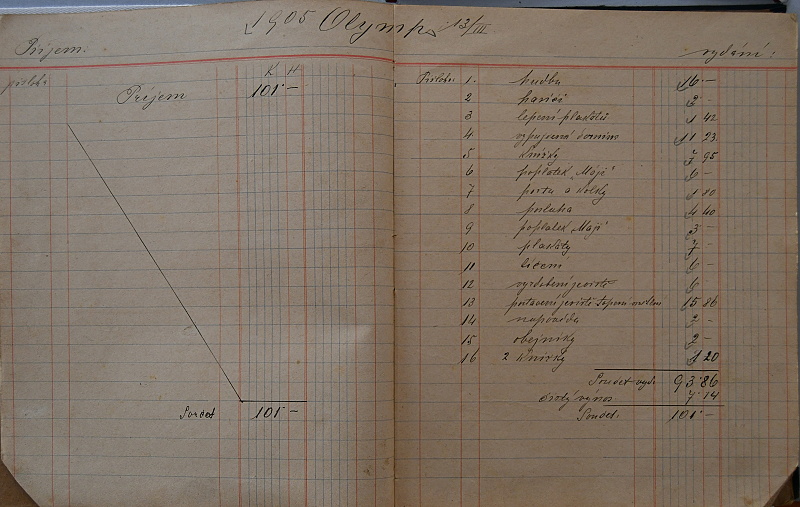 1905 Olymp 13/III
Příjem:
K H
příloha
Příjem 101·—
Součet 101·—
vydání:
Příloha 1. hudba 16·—
2 hasiči 2·—
3 lepení plakátů 1 42
4 vypujčená 11 23
5 Knížky 7 95
6 poplatek „Máji" 6 —
7 porta a Kolky 1 80
8 posluha 4 40
9 poplatek „Máji" 3 —
10 plakáty 7 —
11 líčení 6 —
12 vyzdobení jeviště 6
13 postavení jeviště 15 86
14 napověda 2 —
15 obejníky 2 —
16 2 Knížky 1 20
Součet vyd. 93·86
čistý výnos 7·14
Součet: 101·—